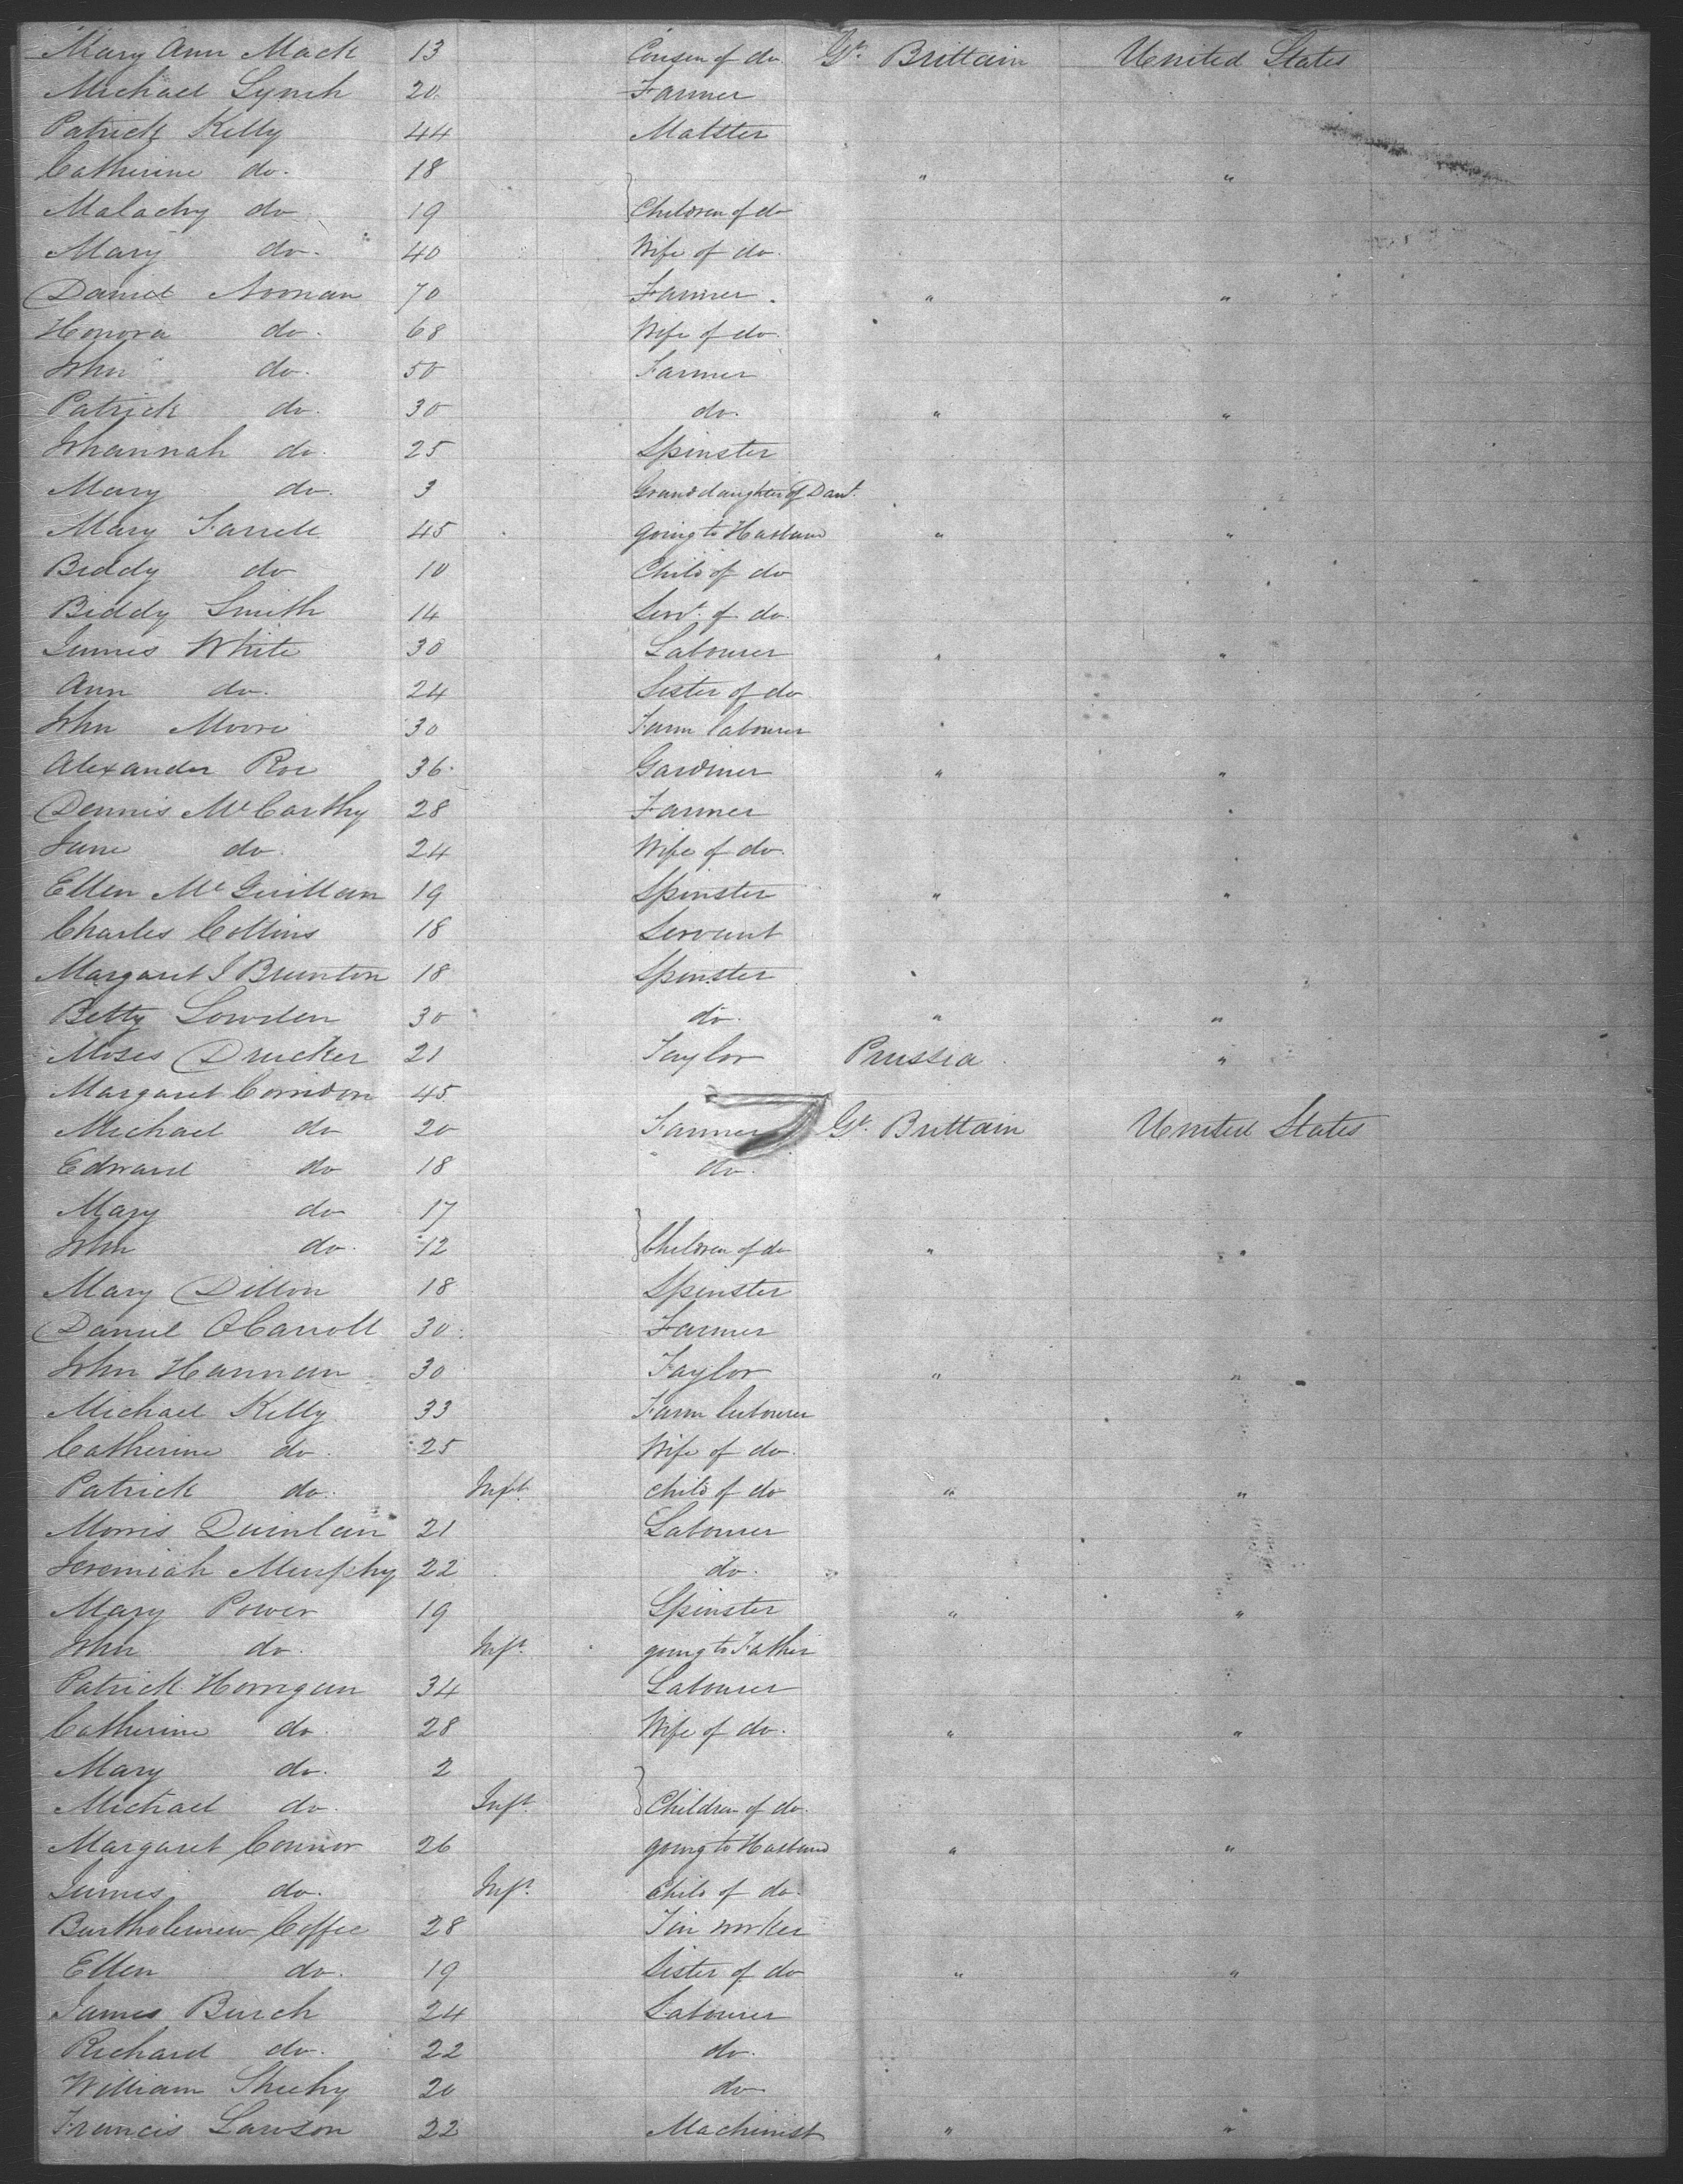 Mary Ann Mack 13 Cousen of do Gt. Brittain United States
Michael Lynch 20 Farmer
Patrick Kelly 44 Malster
Catherine do. 18 " "
Malachy do 19 } Children of do
Mary do. 40 Wife of do.
Daniel Noonan 70 Farmer. " "
Honora do. 68 Wife of do.
John do. 50 Farmer
Patrick do. 30 do. " "
Johannah do. 25 Spinster
Mary do. 3 Granddaughter of Danl.
Mary Farrell 45 going to Husband " "
Biddy do 10 Child of do
Biddy Smith 14 Servt. of do.
James White 30 Labourer " "
Ann do. 24 Sister of do
John Moore 30 Farm labourer "
Alexander Roe 36 Gardiner " "
Dennis McCarthy 28 Farmer
Jane do. 24 Wife of do.
Ellen McQuillan 19 Spinster " "
Charles Collins 18 Servant
Margaret J Brunton 18 Spinster "
Betty Lowden 30 do. " "
Moses Drucker 21 Taylor Prussia "
Margaret Corridon 45
Michael do 20 Farmer Gt. Brittain United States
Edward do 18 do.
Mary do 17
John do. 12 } Children of do " "
Mary Dillon 18 Spinster
Daniel OCarroll 30 Farmer
John Hannan 30 Taylor " "
Michael Kelly 33 Farm labourer
Catherine do. 25 Wife of do.
Patrick do. Inft. child of do " "
Morris Quinlan 21 Labourer
Jeremiah Murphy 22 do.
Mary Power 19 Spinster " "
John do. Inft. going to Father
Patrick Horrigan 34 Labourer
Catherine do. 28 Wife of do. " "
Mary do. 2
Michael do. Inft. } Children of do.
Margaret Connor 26 going to Husband " "
James do. Inft. child of do.
Bartholomew Coffee 28 Tin worker
Ellen do. 19 Sister of do " "
James Burch 24 Labourer
Richard do. 22 do.
William Sheehy 20 do.
Francis Lawson 22 Machinist " "